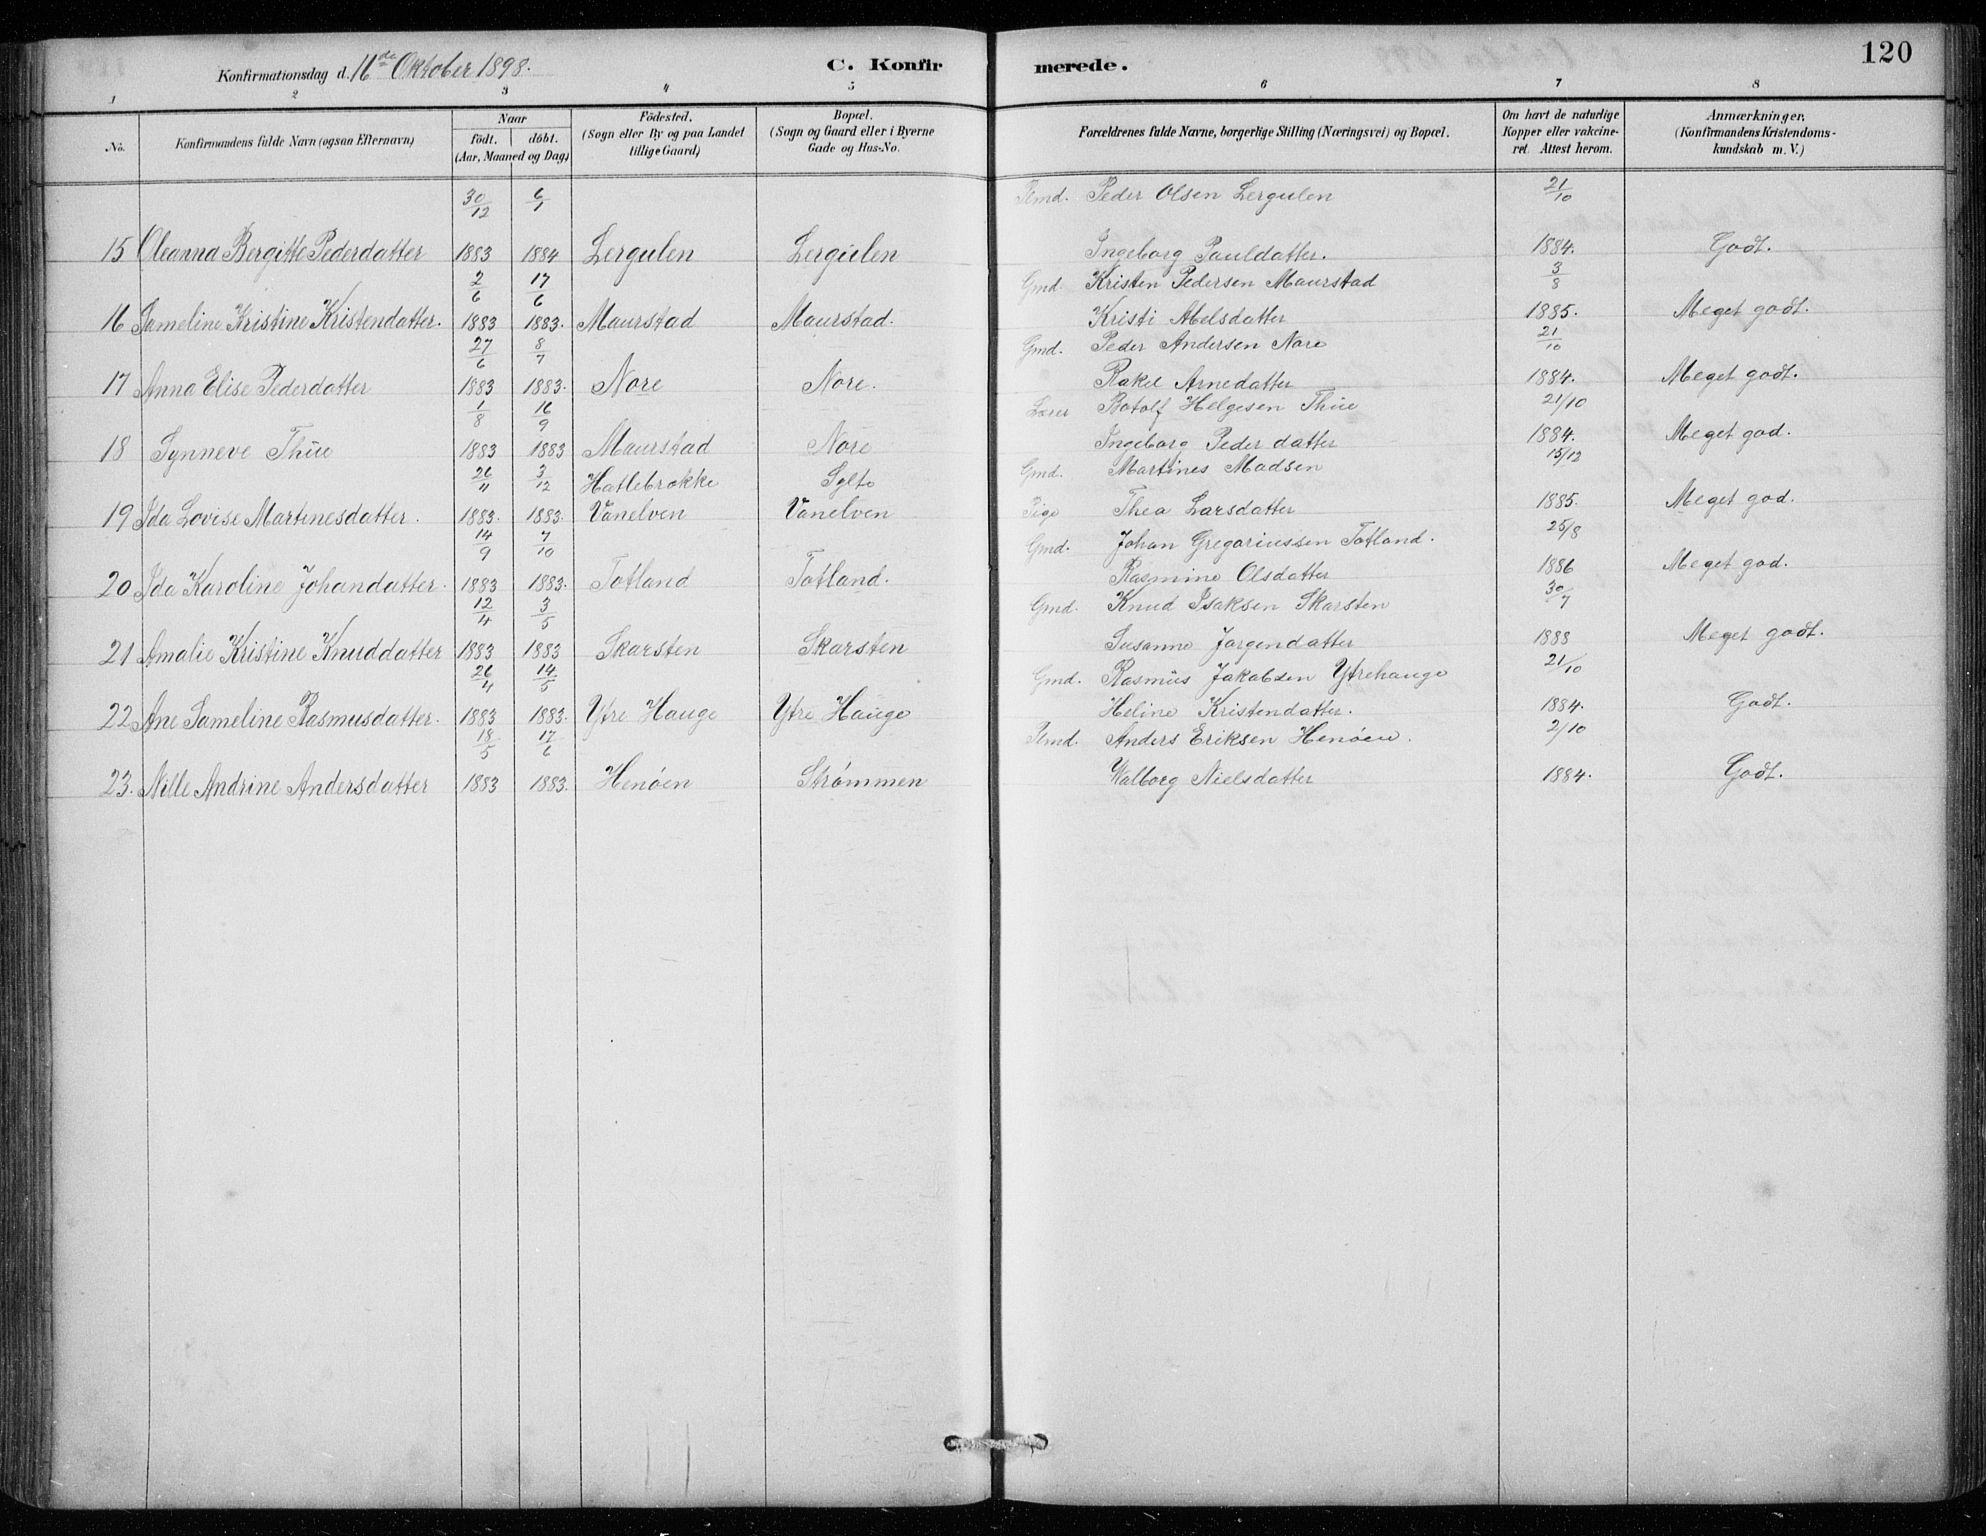 120
Konfirmationsdag d. 16de Oktober 1898.
C. Konfirmerede.
1 2 3 4 5 6 7 8
No. Konfirmandens fulde Navn (ogsaa Efternavn) Naar födt. döbt. (Aar, Maaned og Dag) Födested. (Sogn eller By og paa Landet tillige Gaard) Bopæl. (Sogn og Gaard eller i Byerne Gade og Hus-No. Forældrenes fulde Navne, borgerlige Stilling (Næringsvei) og Bopæl. Om havt de naturlige Kopper eller vakcineret. Attest herom. Anmærkninger. (Konfirmandens Kristendomskundskab m. V.)
30/12 6/1 Plmd. Peder Olsen Lergulen 21/10
15 Oleanna Bergitte Pederdatter 1883 1884 Lergulen Lergulen Ingeborg Pauldatter. 1884. Godt.
2/6 17/6 Gmd. Kristen Pedersen Maurstad 3/8
16 Jameline Kristine Kristendatter. 1883 1883. Maurstad Maurstad. Kristi Abelsdatter 1885. Meget godt.
27/6 8/7 Gmd. Peder Andersen Nore 21/10
17 Anna Elise Pederdatter 1883 1883. Nore Nore. Rakel Arnedatter 1884. Meget godt.
1/8 16/9 Lærer Botolf Helgesen Thue 21/10
18 Synneve Thue 1883 1883 Maurstad Nore Ingeborg Pederdatter 1884. Meget god.
26/11 3/12 Hatlebrække Sylte Gmd. Martines Madsen 15/12
19 Ida Lovise Martinesdatter. 1883. 1883. Vanelven Vanelven Pige Thea Larsdatter 1885. Meget god.
14/9 7/10 Gmd. Johan Gregoriussen Totland. 25/8
20 Ida Karoline Johandatter. 1883 1883. Totland Totland. Rasmine Olsdatter 1886 Meget god.
12/4 3/5 Gmd. Knud Isaksen Skarsten 30/7
21 Amalie Kristine Knuddatter 1883 1883 Skarsten Skarsten Susanne Jørgendatter 1888 Meget godt.
26/4 14/5 Gmd. Rasmus Jakobsen Ytrehauge 21/10
22 Ane Jameline Rasmusdatter. 1883 1883. Ytre Hauge Ytre Hauge Heline Kristendatter. 1884. Godt.
18/5 17/6 Plmd. Anders Eriksen Henöen. 2/10
23. Nille Andrine Andersdatter 1883 1883. Henöen Strömmen Walborg Nielsdatter 1884. Godt.